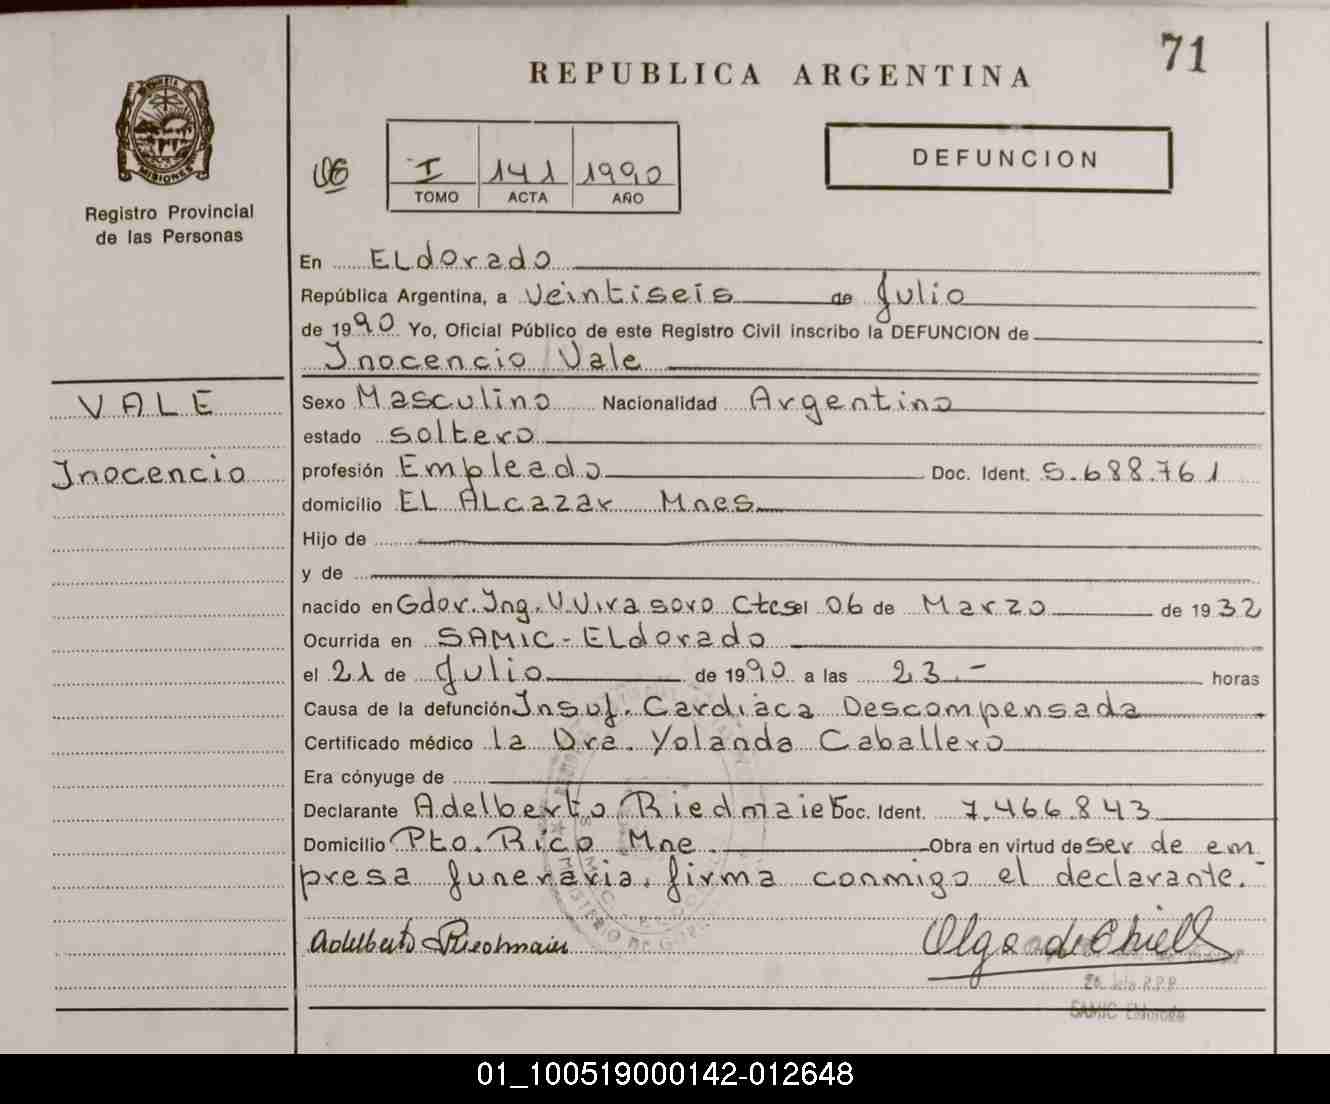 71
REPUBLICA ARGENTINA
MISIONES
Registro Provincial
de las Personas
I 141 1990
TOMO ACTA AÑO
DEFUNCION
En ELdorado
República Argentina, a Veintiseis de Julio
de 1990 Yo, Oficial Público de este Registro Civil inscribo la DEFUNCION de
Inocencio Vale
VALE
Inocencio
Sexo Masculino Nacionalidad Argentino
estado soltero
profesión Empleado Doc. Ident. 5.688.761
domicilio EL ALcazar Mnes
Hijo de
y de
nacido en Gdor. Ing. V. Virasoro Ctes el 06 de Marzo de 1932
Ocurrida en SAMIC - ELdorado
el 21 de Julio de 1990 a las 23.- horas
Causa de la defunción Insuf. Cardiaca Descompensada
Certificado médico la Dra. Yolanda Caballero
Era cónyuge de
Declarante Adelberto Riedmaier Doc. Ident. 7.466.843
Domicilio Pto. Rico Mne. Obra en virtud de ser de em
presa funeraria. firma conmigo el declarante.-
Adelberto Riedmaier
Olga de Chiell
SAMIC Eldorado
01_100519000142-012648